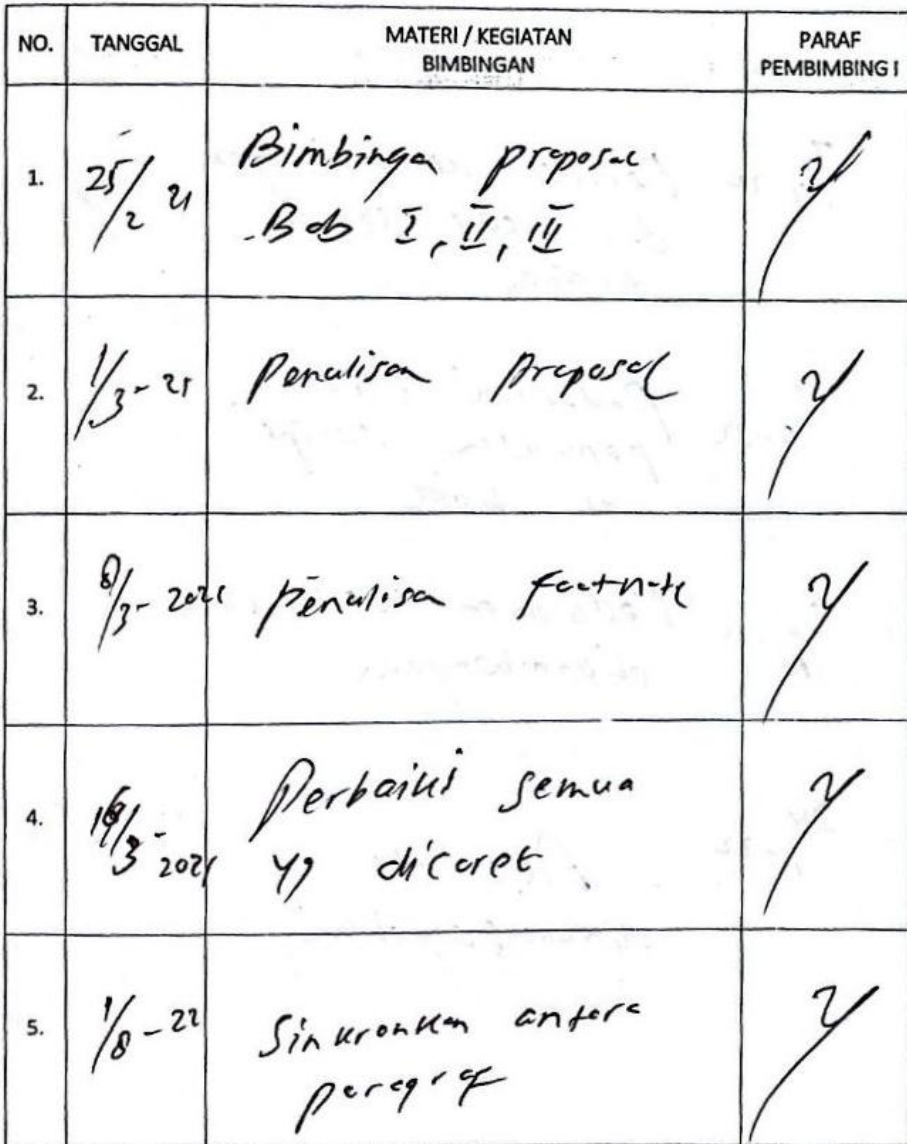 NO. TANGGAL MATERI / KEGIATAN BIMBINGAN PARAF PEMBIMBING I
1. 25/2 21 Bimbinga proposal
Bab I, II, III
2. 1/3-21 Penulisan Proposal
3. 8/3-2021 Penulisa footnote
4. /3-2021 Perbaiki semua
yg dicoret
5. 1/8-22 Sinkronkan antara
paragraf